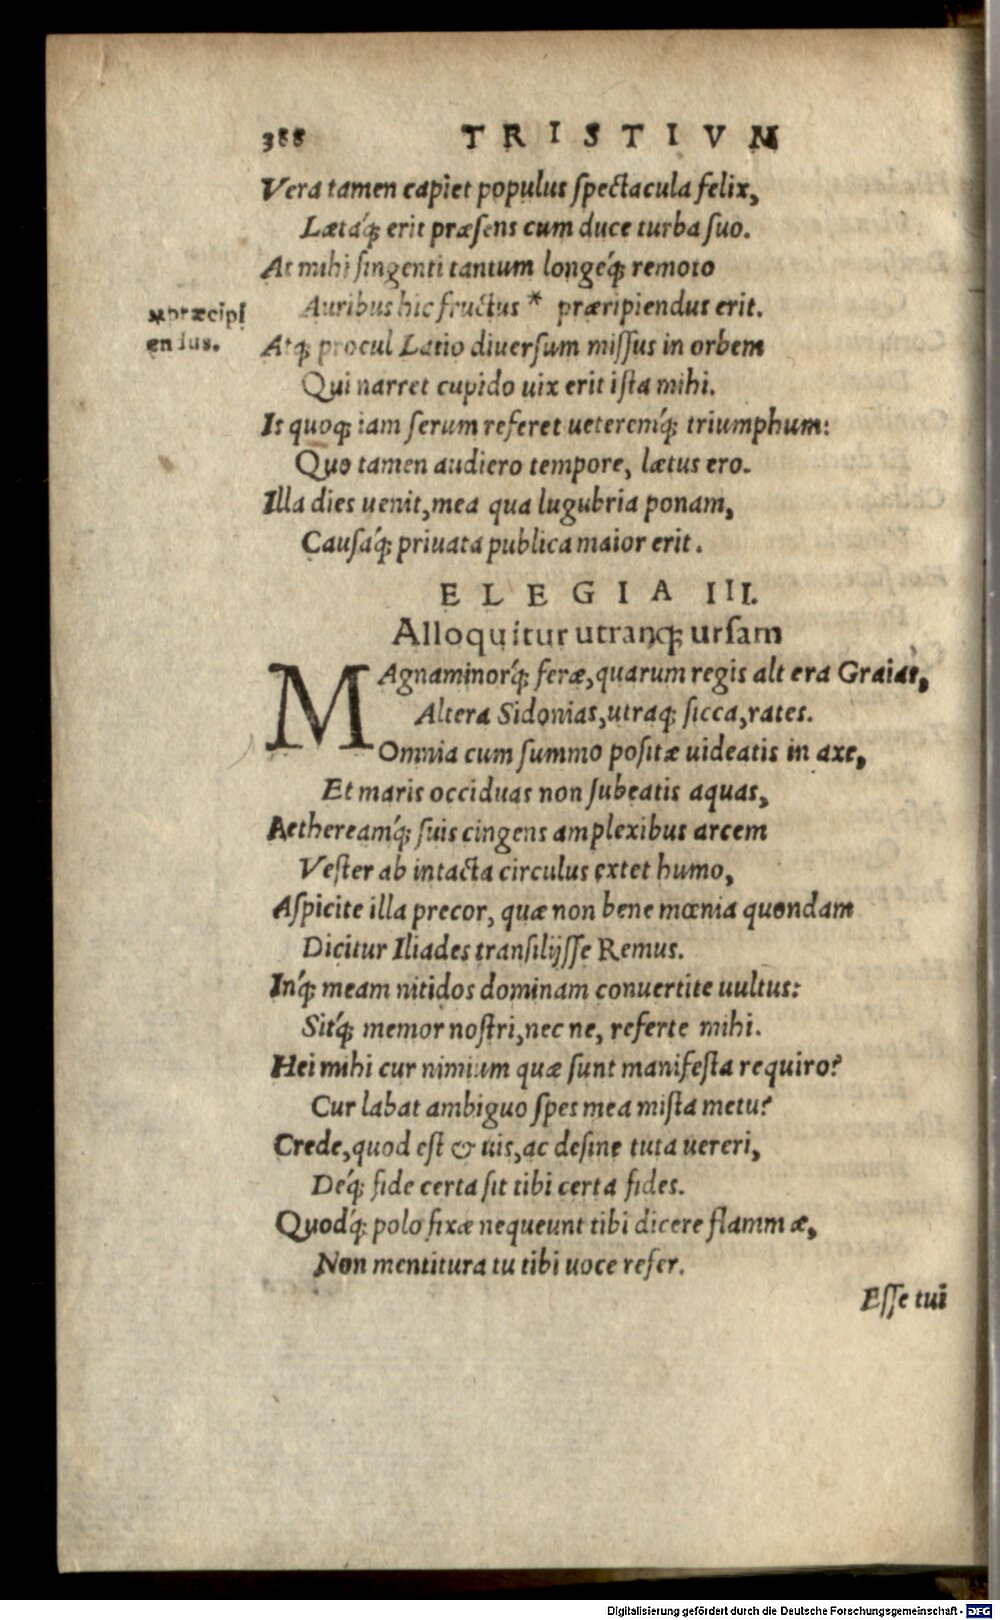 388 TRISTIVM
Vera tamen capiet populus ſpectacula felix,
Lætáq; erit præſens cum duce turba ſuo.
At mihi fingenti tantum longéq; remoto
Auribus hic fructus * præripiendus erit.
*præcipi
endus.
Atq; procul Latio diuerſum miſſus in orbem
Qui narret cupido uix erit iſta mihi.
Is quoq; iam ſerum referet ueteremq́; triumphum:
Quo tamen audiero tempore, lætus ero.
Illa dies uenit, mea qua lugubria ponam,
Cauſáq; priuata publica maior erit.
ELEGIA III.
Alloquitur utranq; urſam
MAgna minorq́; feræ, quarum regis altera Graias,
Altera Sidonias, utraq; ſicca, rates.
Omnia cum ſummo poſitæ uideatis in axe,
Et maris occiduas non ſubeatis aquas,
Aethereamq́; ſuis cingens amplexibus arcem
Veſter ab intacta circulus extet humo,
Aſpicite illa precor, quæ non bene mœnia quondam
Dicitur Iliades tranſilijſſe Remus.
Inq́; meam nitidos dominam conuertite uultus:
Sitq́; memor noſtri, nec ne, referte mihi.
Hei mihi cur nimium quæ ſunt manifeſta requiro?
Cur labat ambiguo ſpes mea miſta metu?
Crede, quod eſt & uis, ac deſine tuta uereri,
Deq́; fide certa ſit tibi certa fides.
Quodq́; polo fixæ nequeunt tibi dicere flammæ,
Non mentitura tu tibi uoce refer.
Eſſe tui
Digitalisierung gefördert durch die Deutsche Forschungsgemeinschaft - DFG